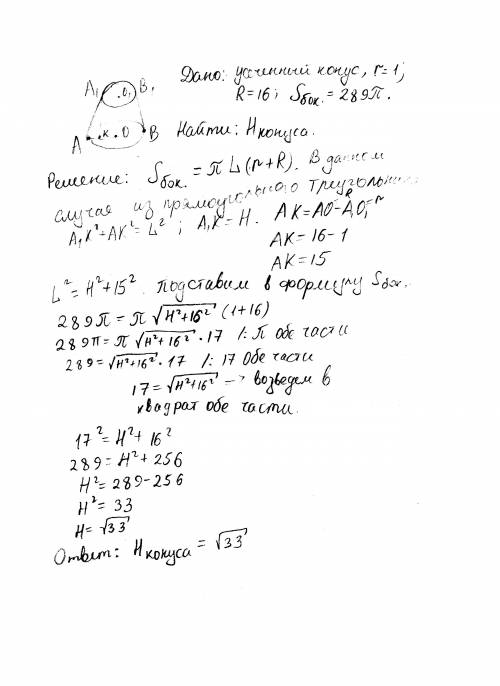 Дано: усеченный конус, r=1;
R=16; Sбок.=289π.
A₁ O₁ B₁
A K O B
Найти: Hконуса.
Решение: Sбок.=π L(r+R). В данном
случае из прямоугольного треугольника
A₁K²+AK²=L²; A₁K=H. AK=AO-A₁O₁
R r
AK=16-1
AK=15
L²=H²+15². подставим в формулу Sбок.
289π=π√(H²+16²)(1+16)
289π=π√(H²+16²)·17 /:π обе части
289=√(H²+16²)·17 /:17 обе части
17=√(H²+16²) → возведем в
квадрат обе части.
17²=H²+16²
289=H²+256
H²=289-256
H²=33
H=√33
Ответ: Hконуса=√33